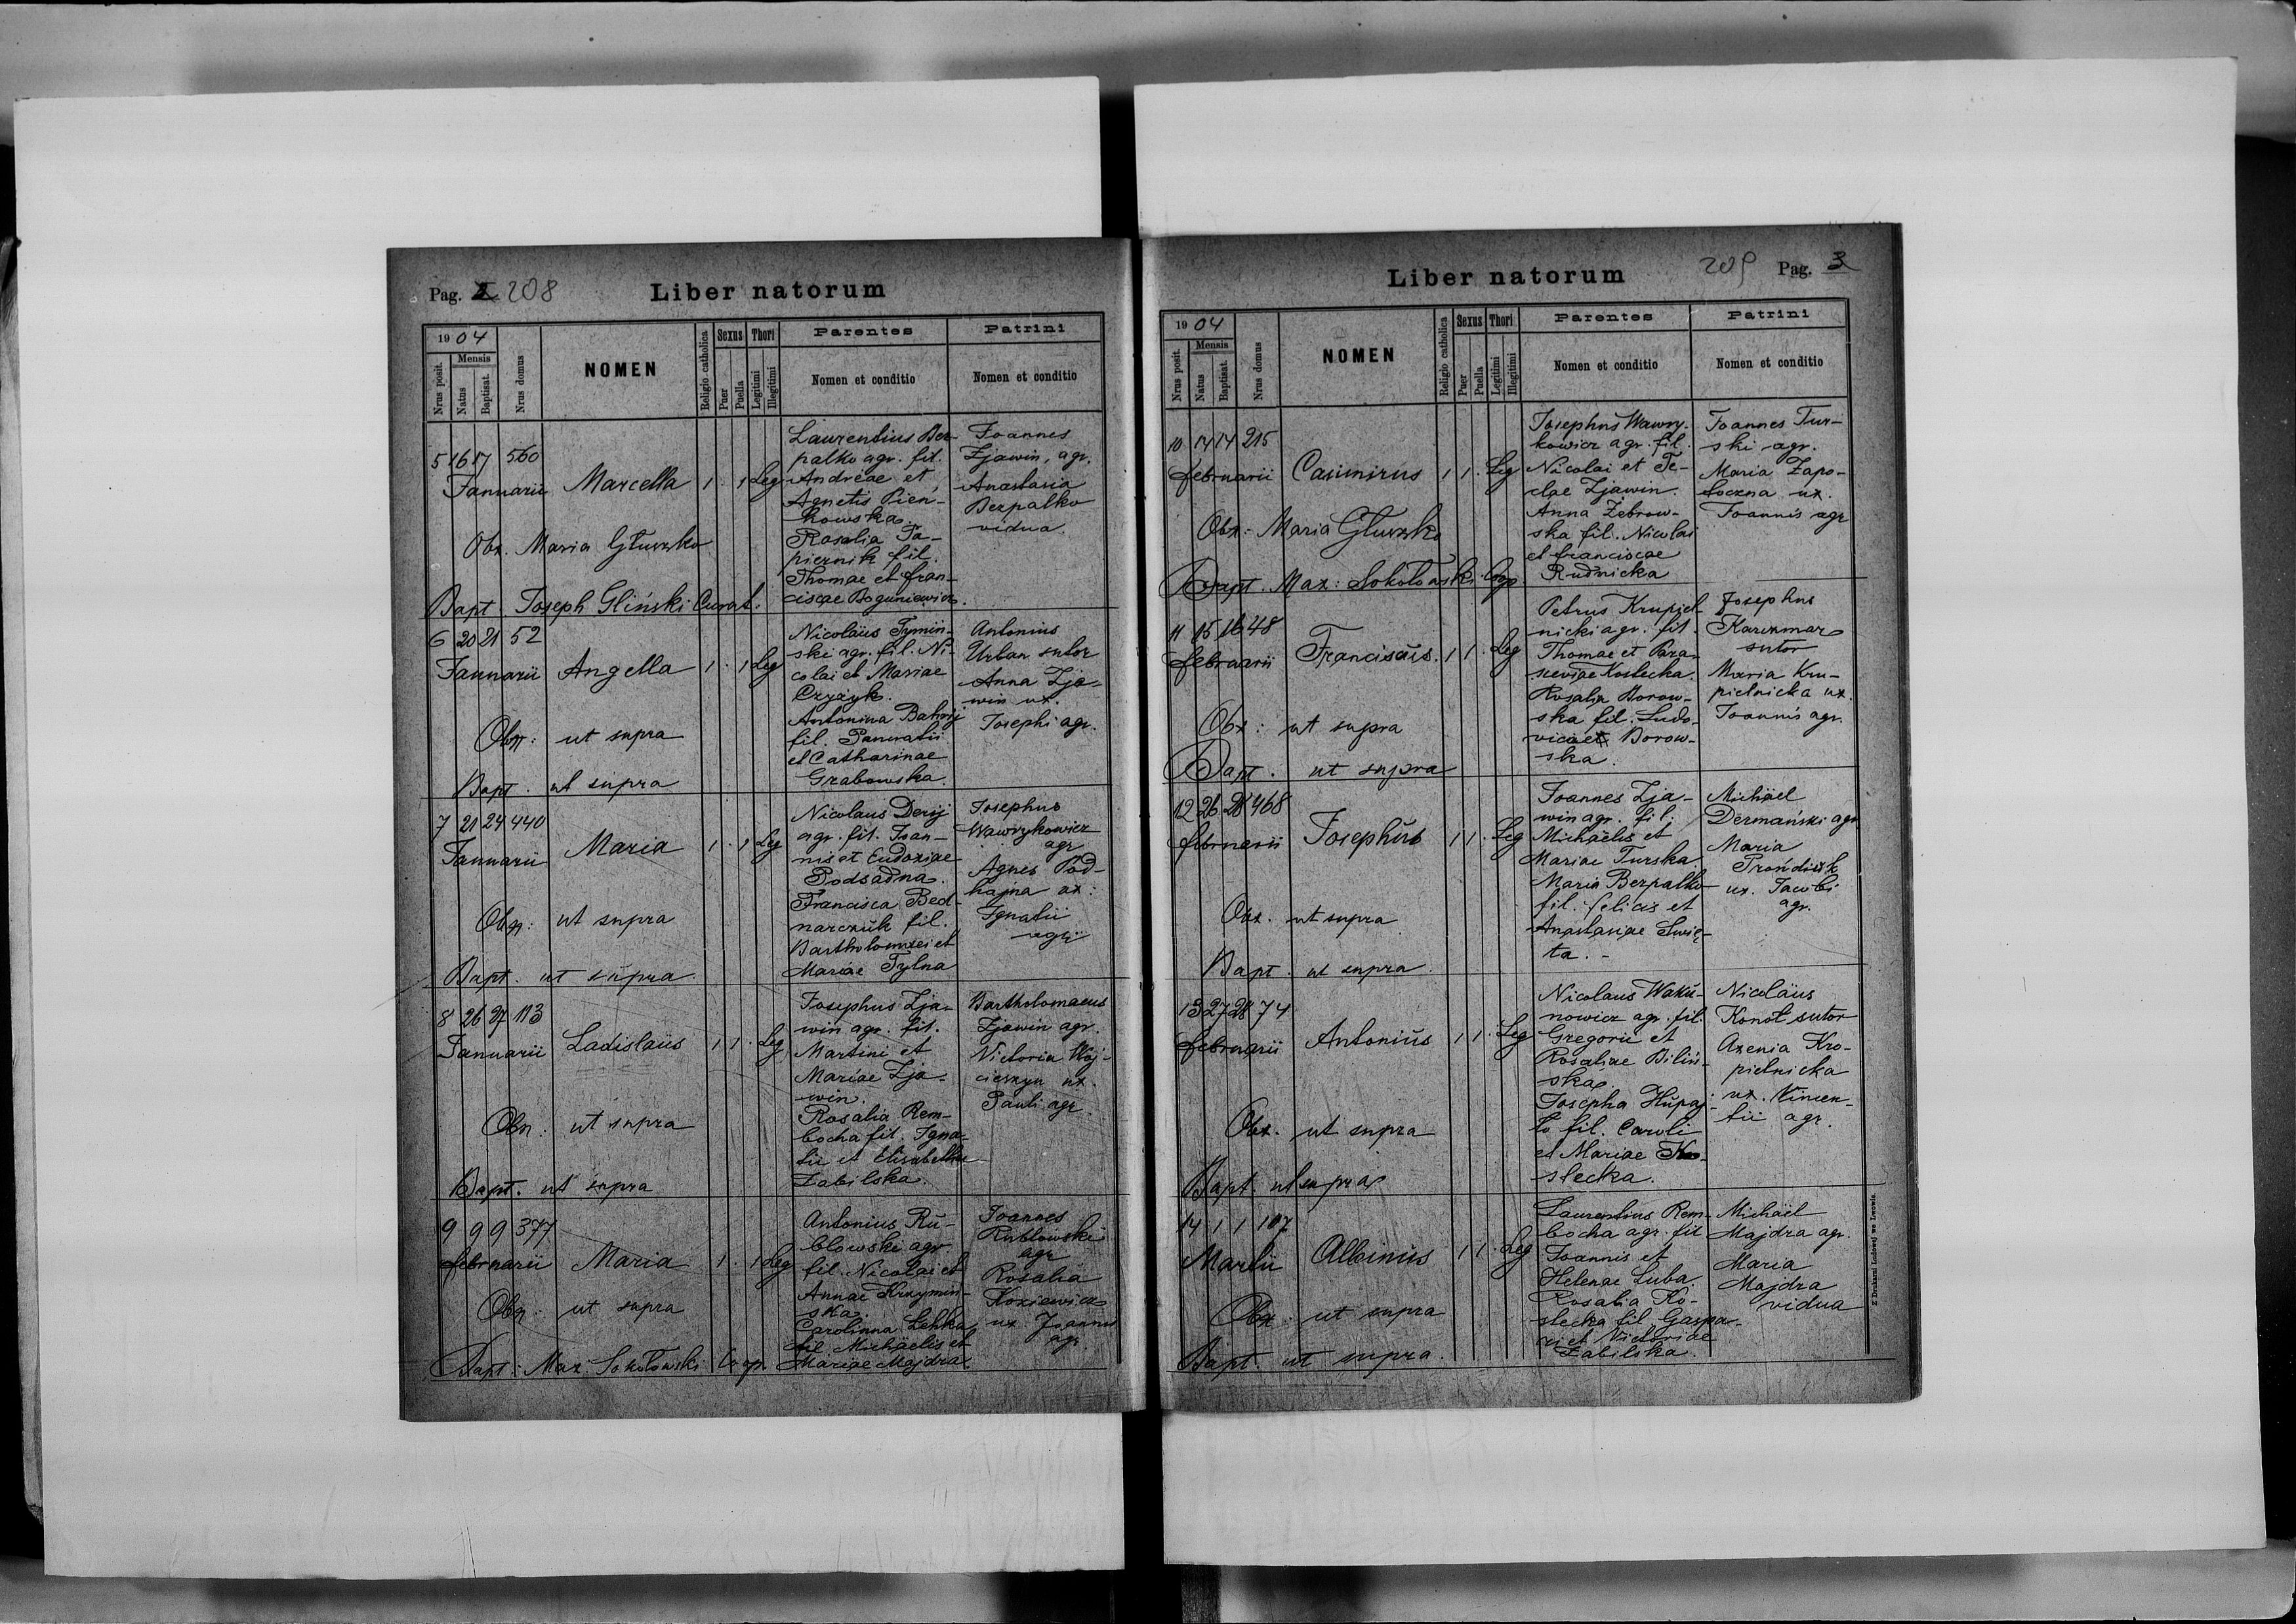 Pag. 2 208
Liber natorum
1904
Nrus posit.
Mensis
Natus
Baptisat.
Nrus domus
NOMEN
Religio catholica
Sexus
Puer
Puella
Thori
Legitimi
Illegitimi
Parentes
Nomen et conditio
Patrini
Nomen et conditio
5 16 17 560
Januarii Marcella 1 . 1 Leg
Obx. Maria Głuszko
Bapt. Joseph Gliński Curat.
Laurentius Bez-
palko agr. fil.
Andreae et
Agnetis Pien-
kowska.
Rosalia Pa-
piernik fil.
Thomae et Fran-
ciscae Boguniewicz.
Joannes
Zjawin, agr.
Anastasia
Bezpalko
vidua.
6 20 21 52
Januarii Angella 1 . 1 Leg
Obx: ut supra
Bapt. ut supra
Nicolaüs Tymin-
ski agr. fil. Ni-
colai et Mariae
Czyżyk.
Antonina Bahrij
fil. Pancratii
et Catharinae
Grabowska.
Antonius
Urban sutor
Anna Zja-
win ux.
Josephi agr.
7 21 24 440
Januarii Maria 1 . 1 Leg
Obx: ut supra
Bapt. ut supra
Nicolaus Derij
agr. fil. Joan-
nis et Eudoxiae
Podsadna.
Francisca Bed-
narczuk fil.
Bartholomaei et
Mariae Tylna
Josephus
Wawrykowicz
agr
Agnes Pod-
hajna ux:
Ignatii
agr
8 26 27 113
Januarii Ladislaüs 1 1 . Leg
Obx: ut supra
Bapt. ut supra
Josephus Zja-
win agr. fil.
Martini et
Mariae Zja-
win.
Rosalia Rem-
bocha fil. Igna-
tii et Elisabethae
Zabilska.
Bartholomaeus
Zjawin agr.
Victoria Woj-
cieszyn ux.
Pauli agr.
9 9 9 377
februarii Maria 1 . 1 Leg
Obx: ut supra
Bapt: Max: Sokołowski Coop.
Antonius Ru-
blowski agr.
fil. Nicolai et
Annae Krzymin-
ska.
Carolinna Lehka
fil. Michäelis et
Mariae Majdra.
Joannes
Rublowski
agr
Rosalia
Koziewicz
ux. Joannis
agr.
Liber natorum
209 Pag. 3
1904
Nrus posit.
Mensis
Natus
Baptisat.
Nrus domus
NOMEN
Religio catholica
Sexus
Puer
Puella
Thori
Legitimi
Illegitimi
Parentes
Nomen et conditio
Patrini
Nomen et conditio
10 14 14 215
februarii Casimirus 1 1 . Leg
Obx: Maria Głuszko
Bapt. Max: Sokołowski Coop.
Josephus Wawry-
kowicz agr. fil.
Nicolai et Te-
clae Zjawin.
Anna Żebrow-
ska fil. Nicolai
et Franciscae
Rudnicka
Joannes Tur-
ski agr.
Maria Zapo-
toczna ux.
Joannis agr
11 15 16 48
februarii Franciscüs. 1 1 . Leg
Obx: ut supra
Bapt. ut supra
Petrus Krupiel-
nicki agr. fil.
Thomae et Para-
sceviae Kostecka.
Rosalia Borow-
ska fil. Ludo-
vici et Borow-
ska.
Josephus
Karczmarz
sutor
Maria Kru-
pielnicka ux.
Joannis agr.
12 26 28 468
februarii Josephüs 1 1 . Leg
Obx. ut supra
Bapt. ut supra.
Joannes Zja-
win agr. fil.
Michäelis et
Mariae Turska.
Maria Bezpalko
fil. felicis et
Anastasiae Świę-
ta. -
Michäel
Dermański agr
Maria
ux. Jacobi
agr.
13 27 28 74
februarii Antonius 1 1 . Leg
Obx. ut supra
Bapt. ut supra
Nicolaus Waku-
nowicz agr. fil.
Gregorii et
Rosaliae Biliń-
ska.
Josepha Hupaj-
lo fil. Caroli
et Mariae Ko-
stecka.
Nicolaüs
Konot sutor
Axenia Kro-
pielnicka
ux. Vincen-
tii agr.
14 1 1 107
Martii Albinus 1 1 . Leg
Obx: ut supra
Bapt. ut supra.
Laurentius Rem-
bocha agr. fil
Joannis et
Helenae Luba.
Rosalia Ko-
stecka fil. Gaspa-
ri et Victoriae
Zabilska.
Michäel
Majdra agr.
Maria
Majdra
vidua
Z Drukarni Ludowej we Lwowie.